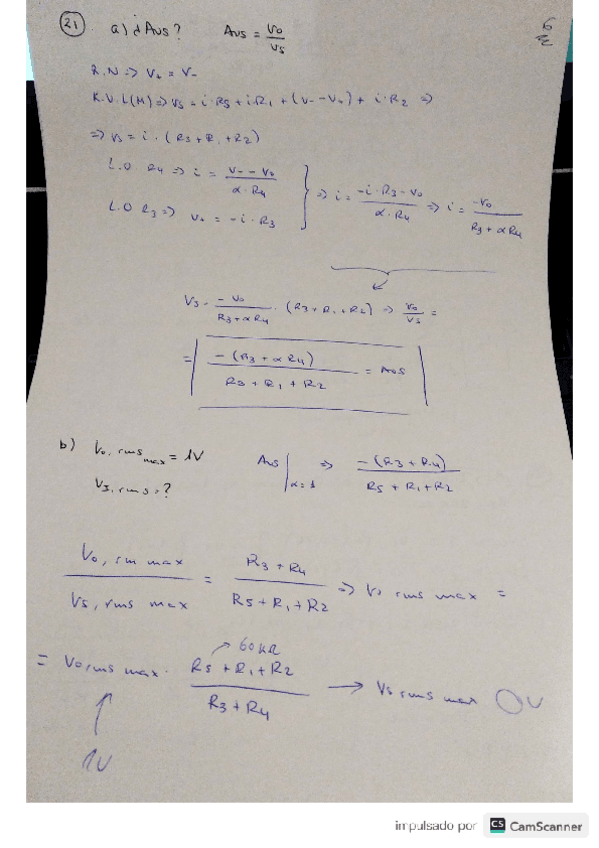 21 a) ¿Avs? Avs = Vo/Vs
R.N => V+ = V-
K.V.L(M) => Vs = i·R5 + i·R1 + (V- - V+) + i·R2 =>
=> Vs = i·(R5 + R1 + R2)
L.O R4 => i = (V- - Vo)/(α·R4)
L.O R3 => V+ = -i·R3
=> i = (-i·R3 - Vo)/(α·R4) => i = -Vo/(R3 + αR4)
Vs = -Vo/(R3 + αR4) · (R5 + R1 + R2) => Vo/Vs =
= -(R3 + αR4)/(R5 + R1 + R2) = Avs
b) Vo, rms max = 1V
Vs, rms = ?
Avs | α=1 => -(R3 + R4)/(R5 + R1 + R2)
Vo, rm max/Vs, rms max = (R3 + R4)/(R5 + R1 + R2) => Vs rms max =
60 kΩ
= Vo rms max · (R5 + R1 + R2)/(R3 + R4) → Vs rms max V
1V
impulsado por CS CamScanner